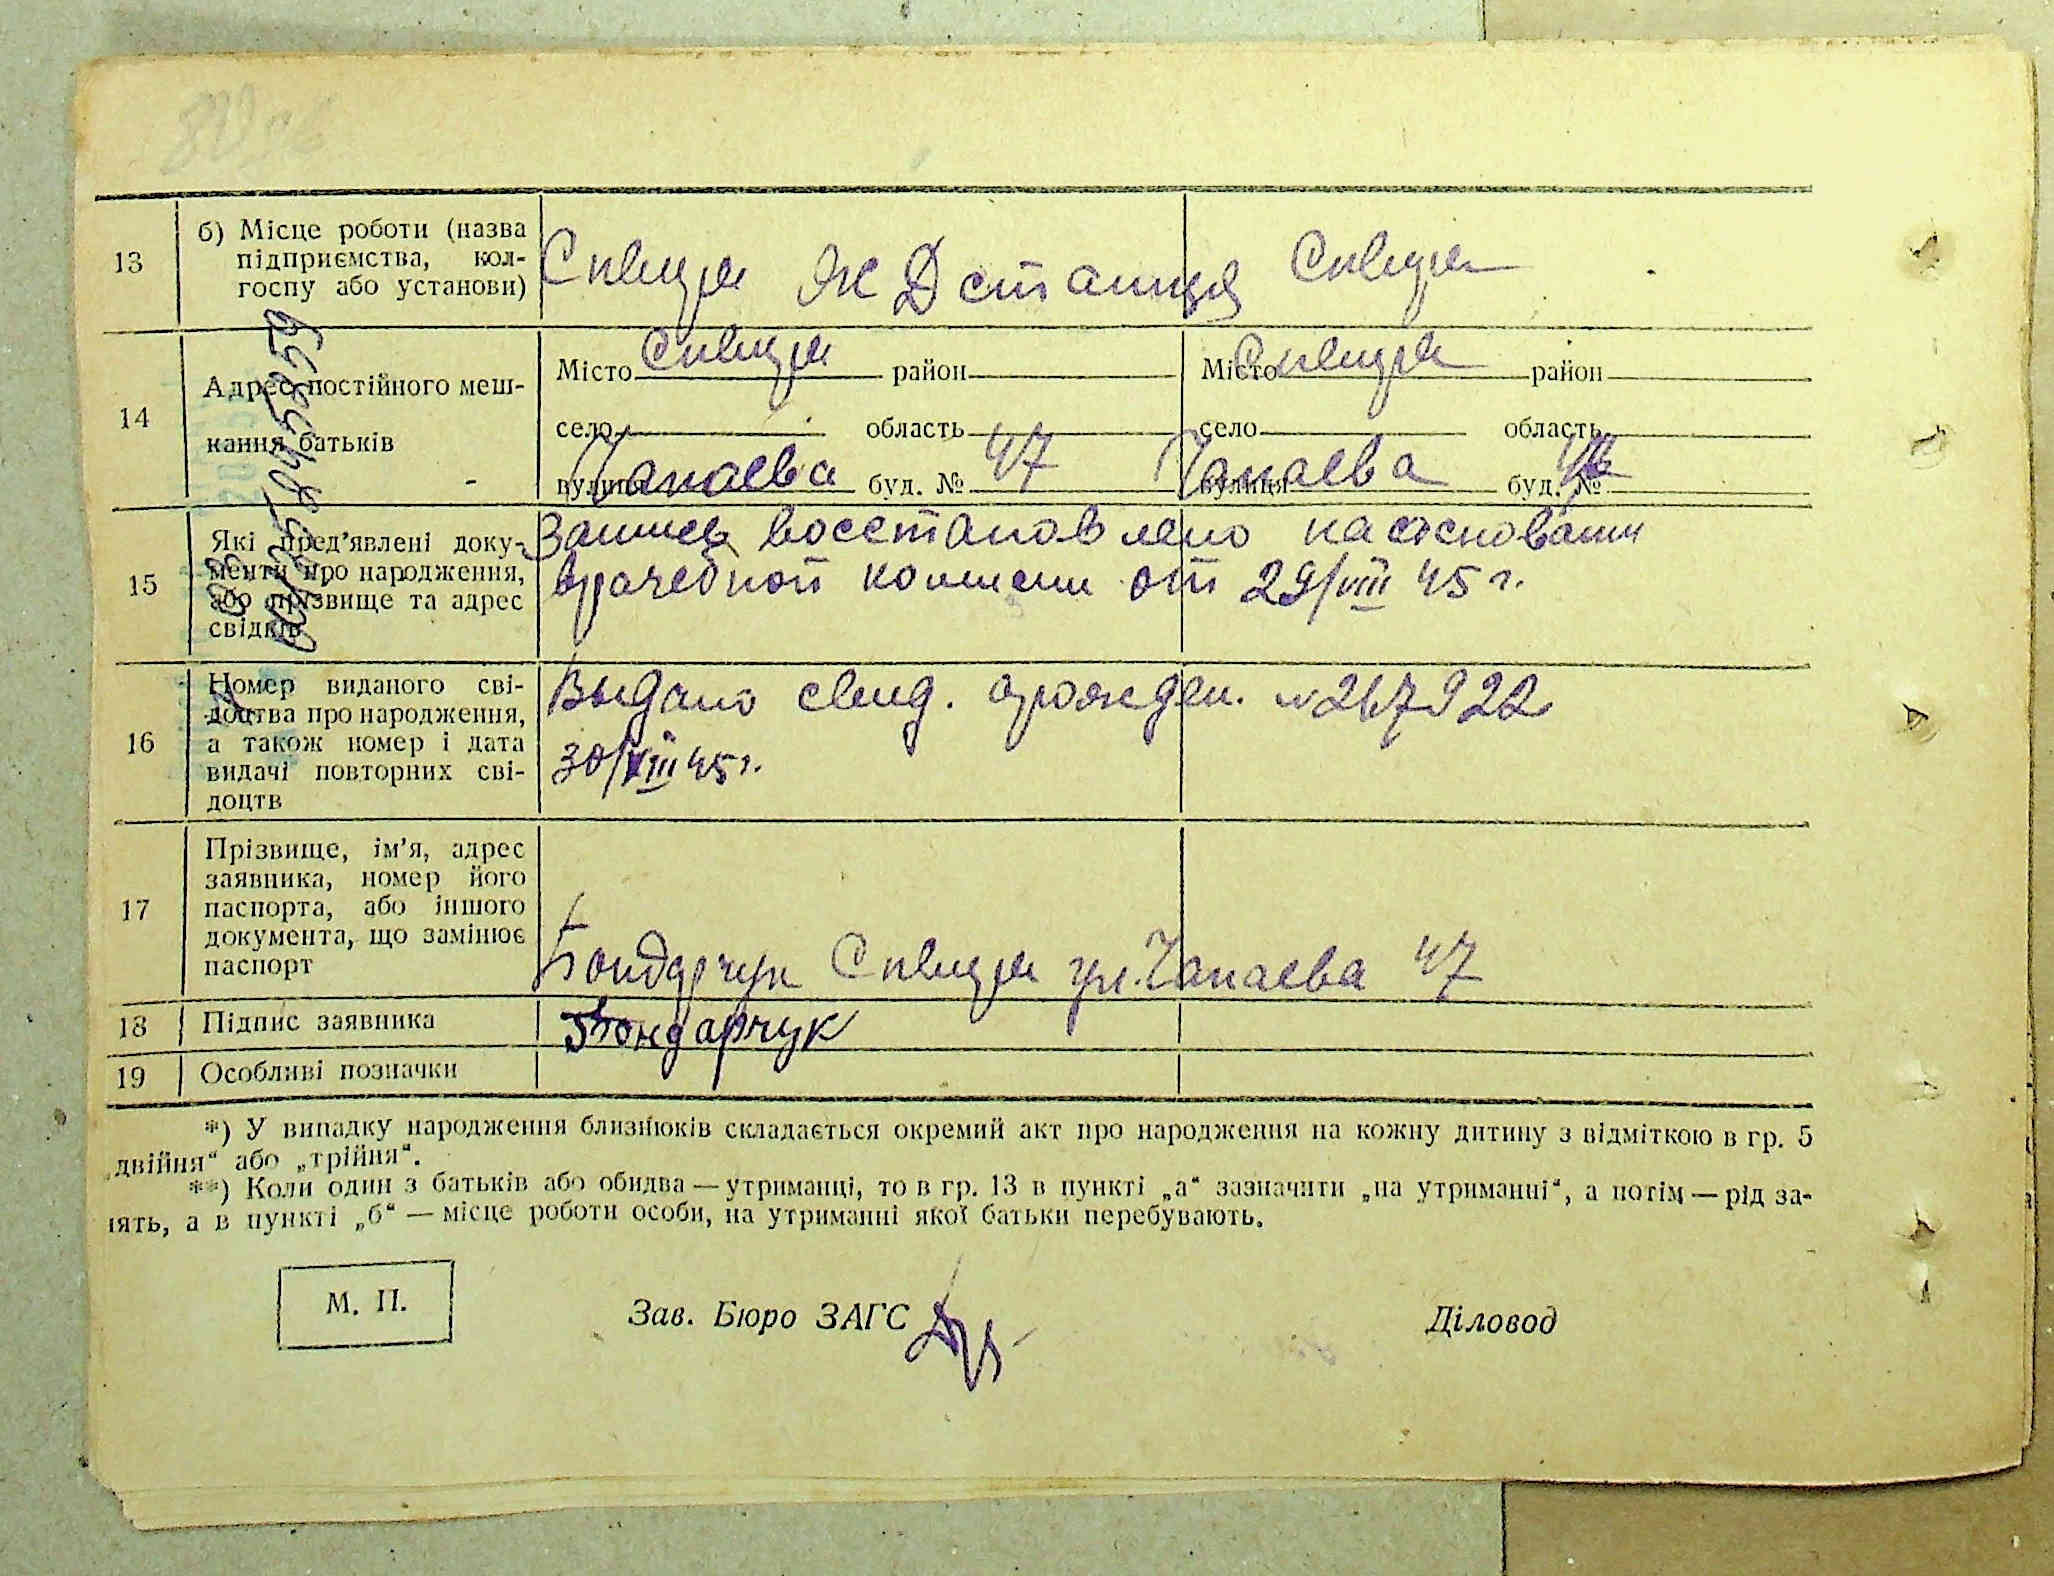 13
б) Місце роботи (назва
підприємства, кол-
госпу або установи)
Сквира Ж Д станция
Сквира
14
Адрес постійного меш-
кання батьків
Місто Сквира район
село область
вулиця Чапаева буд. № 47
Місто Сквира район
село область
вулиця Чапаева буд. №
15
Які пред'явлені доку-
менти про народження,
або прізвище та адрес
свідків
Запись восстановлено на основании
врачебной комисии от 29/VIII 45 г.
16
Номер виданого сві-
доцтва про народження,
а також номер і дата
видачі повторних сві-
доцтв
Выдано свид. о рожден. № 267922
30/VIII 45 г.
17
Прізвище, ім'я, адрес
заявника, номер його
паспорта, або іншого
документа, що замінює
паспорт
Бондарчук Сквира ул. Чапаева 47
18
Підпис заявника
Бондарчук
19
Особливі позначки
*) У випадку народження близнюків складається окремий акт про народження на кожну дитину з відміткою в гр. 5
„двійня“ або „трійня“.
**) Коли один з батьків або обидва — утриманці, то в гр. 13 в пункті „а“ зазначити „на утриманні“, а потім — рід за-
нять, а в пункті „б“ — місце роботи особи, на утриманні якої батьки перебувають.
М. П.
Зав. Бюро ЗАГС
Діловод